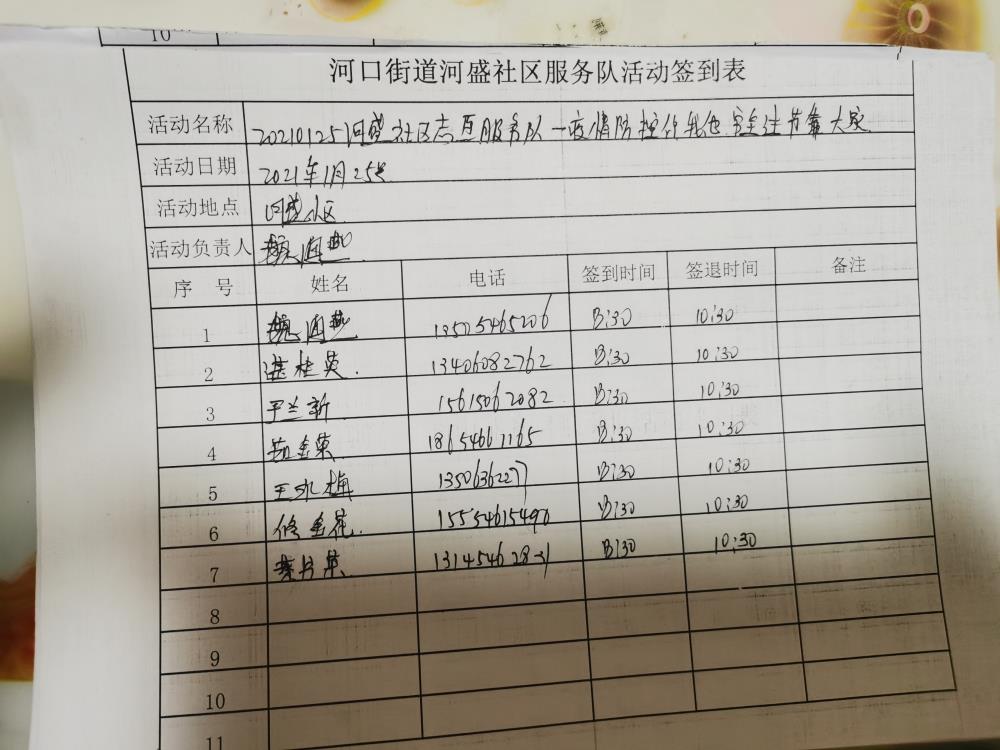 10
河口街道河盛社区服务队活动签到表
活动名称 20210125河盛社区志愿服务队一疫情防控 安全过节靠大家
活动日期 2021年1月25号
活动地点 河盛社区
活动负责人
序号 姓名 电话 签到时间 签退时间 备注
1 13505465206 8:30 10:30
2 桂英 13406082762 8:30 10:30
3 兰新 15615062082 8:30 10:30
4 金英 18654661165 8:30 10:30
5 王永梅 1350636227 8:30 10:30
6 修金花 15554615490 8:30 10:30
7 131454628 8:30 10:30
8
9
10
11